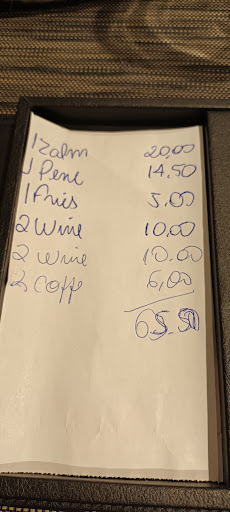 1 Zalm 20,00
1 Pene 14.50
1 Fries 5,00
2 Wine 10,00
2 wine 10.00
2 Coffe 6,00
65.50